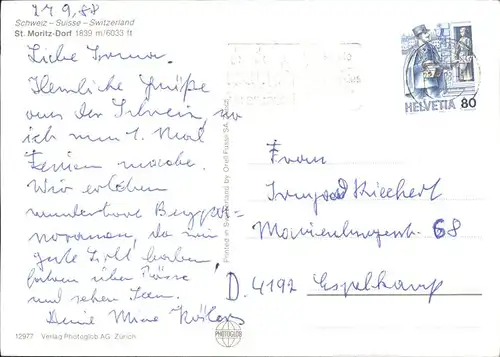 27.9.88
Schweiz – Suisse – Switzerland
St. Moritz-Dorf 1839 m/6033 ft
Liebe Irma.
Herzliche Grüße
aus der Schweiz, wo
ich nun 1. Mal
Ferien mache.
Wir erleben
wunderbare Bergpa-
noramen, da wir
gute Sicht haben,
fahren über Pässe
und sehen Seen.
Deine
HELVETIA 80
Printed in Switzerland by Orell Füssli SA, Zurich
Frau
Irmgard Riechert
68
D. 4192 Espelkamp
12977 Verlag Photoglob AG, Zürich
PHOTOGLOB